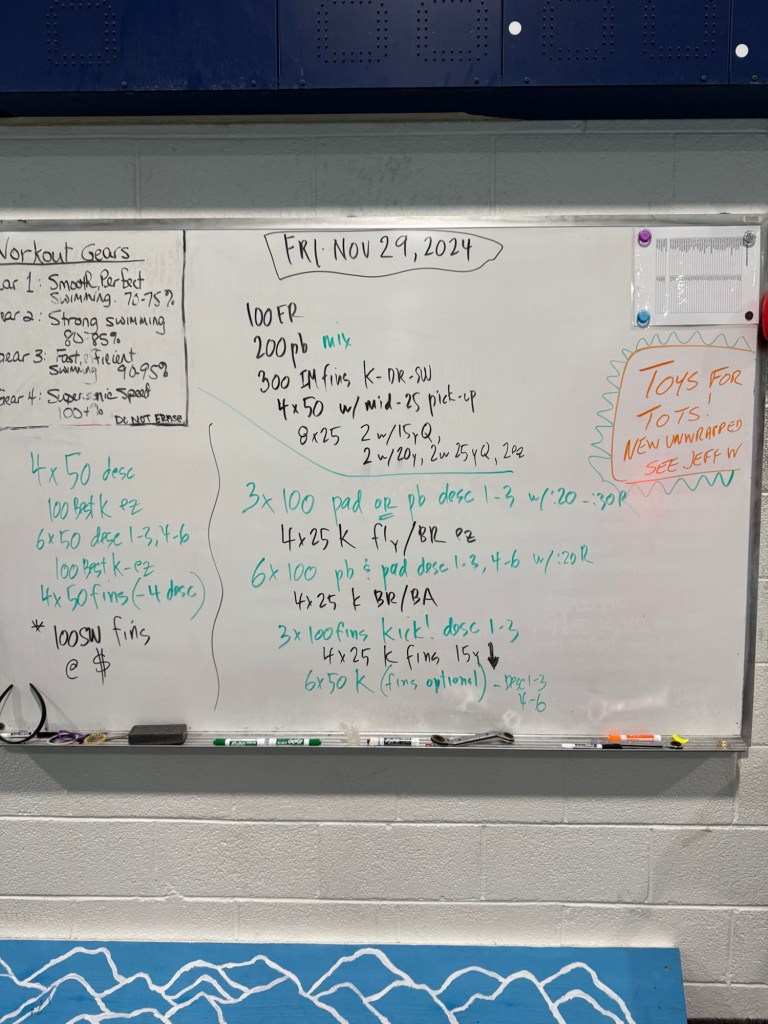 Workout Gears
ear 1: Smooth, Perfect
Swimming. 70-75%
ear 2: Strong swimming
80-85%
Gear 3: Fast, efficient
Swimming 90-95%
Gear 4: Supersonic Speed
100+%
DO NOT ERASE
FRI. NOV 29, 2024
100 FR
200 pb mix
300 IM fins K-DR-SW
4x50 w/ mid-25 pick-up
8x25 2 w/15y Q,
2 w/20y, 2w 25y Q, 2ez
3x100 pad OR pb desc 1-3 w/:20-:30R
4x25 K fly/BR ez
6x100 pb & pad desc 1-3, 4-6 w/:20R
4x25 K BR/BA
3x100 fins kick! desc 1-3
4x25 K fins 15y ↓
6x50 K (fins optional) - Desc 1-3
4-6
4x50 desc
100 Best K ez
6x50 desc 1-3, 4-6
100 Best K-ez
4x50 fins (-4 desc)
* 100 SW fins
@ $
TOYS FOR
TOTS!
NEW UNWRAPPED
SEE JEFF W